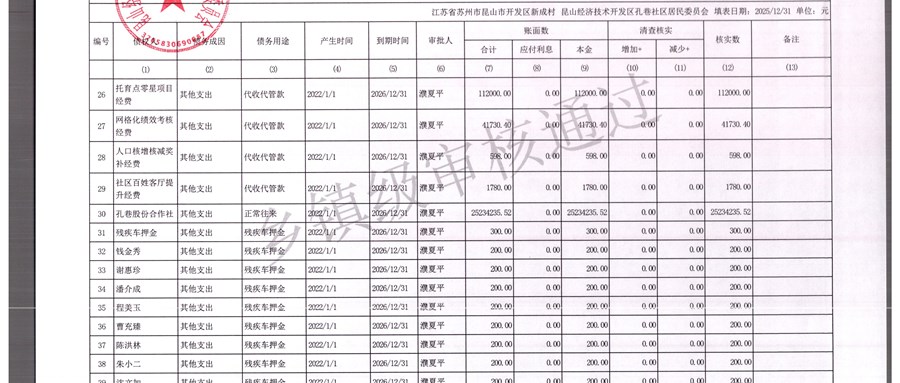 江苏省苏州市昆山市开发区新成村 昆山经济技术开发区孔巷社区居民委员会 填表日期：2025/12/31 单位：元
编号 债权 债务成因 债务用途 产生时间 到期时间 审批人 账面数 清查核实 核实数 备注
合计 应付利息 本金 增加+ 减少+
(1) (2) (3) (4) (5) (6) (7) (8) (9) (10) (11) (12) (13)
26 托育点零星项目经费 其他支出 代收代管款 2022/1/1 2026/12/31 濮夏平 112000.00 0.00 112000.00 0.00 0.00 112000.00
27 网格化绩效考核经费 其他支出 代收代管款 2022/1/1 2026/12/31 濮夏平 41730.40 0.00 41730.40 0.00 0.00 41730.40
28 人口核增核减奖补经费 其他支出 代收代管款 2022/1/1 2026/12/31 濮夏平 598.00 0.00 598.00 0.00 0.00 598.00
29 社区百姓客厅提升经费 其他支出 代收代管款 2022/1/1 2026/12/31 濮夏平 1780.00 0.00 1780.00 0.00 0.00 1780.00
30 孔巷股份合作社 其他支出 正常往来 2022/1/1 2026/12/31 濮夏平 25234235.52 0.00 25234235.52 0.00 0.00 25234235.52
31 残疾车押金 其他支出 残疾车押金 2022/1/1 2026/12/31 濮夏平 300.00 0.00 300.00 0.00 0.00 300.00
32 钱金秀 其他支出 残疾车押金 2022/1/1 2026/12/31 濮夏平 200.00 0.00 200.00 0.00 0.00 200.00
33 谢惠珍 其他支出 残疾车押金 2022/1/1 2026/12/31 濮夏平 200.00 0.00 200.00 0.00 0.00 200.00
34 潘介成 其他支出 残疾车押金 2022/1/1 2026/12/31 濮夏平 200.00 0.00 200.00 0.00 0.00 200.00
35 程美玉 其他支出 残疾车押金 2022/1/1 2026/12/31 濮夏平 200.00 0.00 200.00 0.00 0.00 200.00
36 曹充臻 其他支出 残疾车押金 2022/1/1 2026/12/31 濮夏平 200.00 0.00 200.00 0.00 0.00 200.00
37 陈洪林 其他支出 残疾车押金 2022/1/1 2026/12/31 濮夏平 200.00 0.00 200.00 0.00 0.00 200.00
38 朱小二 其他支出 残疾车押金 2022/1/1 2026/12/31 濮夏平 200.00 0.00 200.00 0.00 0.00 200.00
乡镇级审核通过